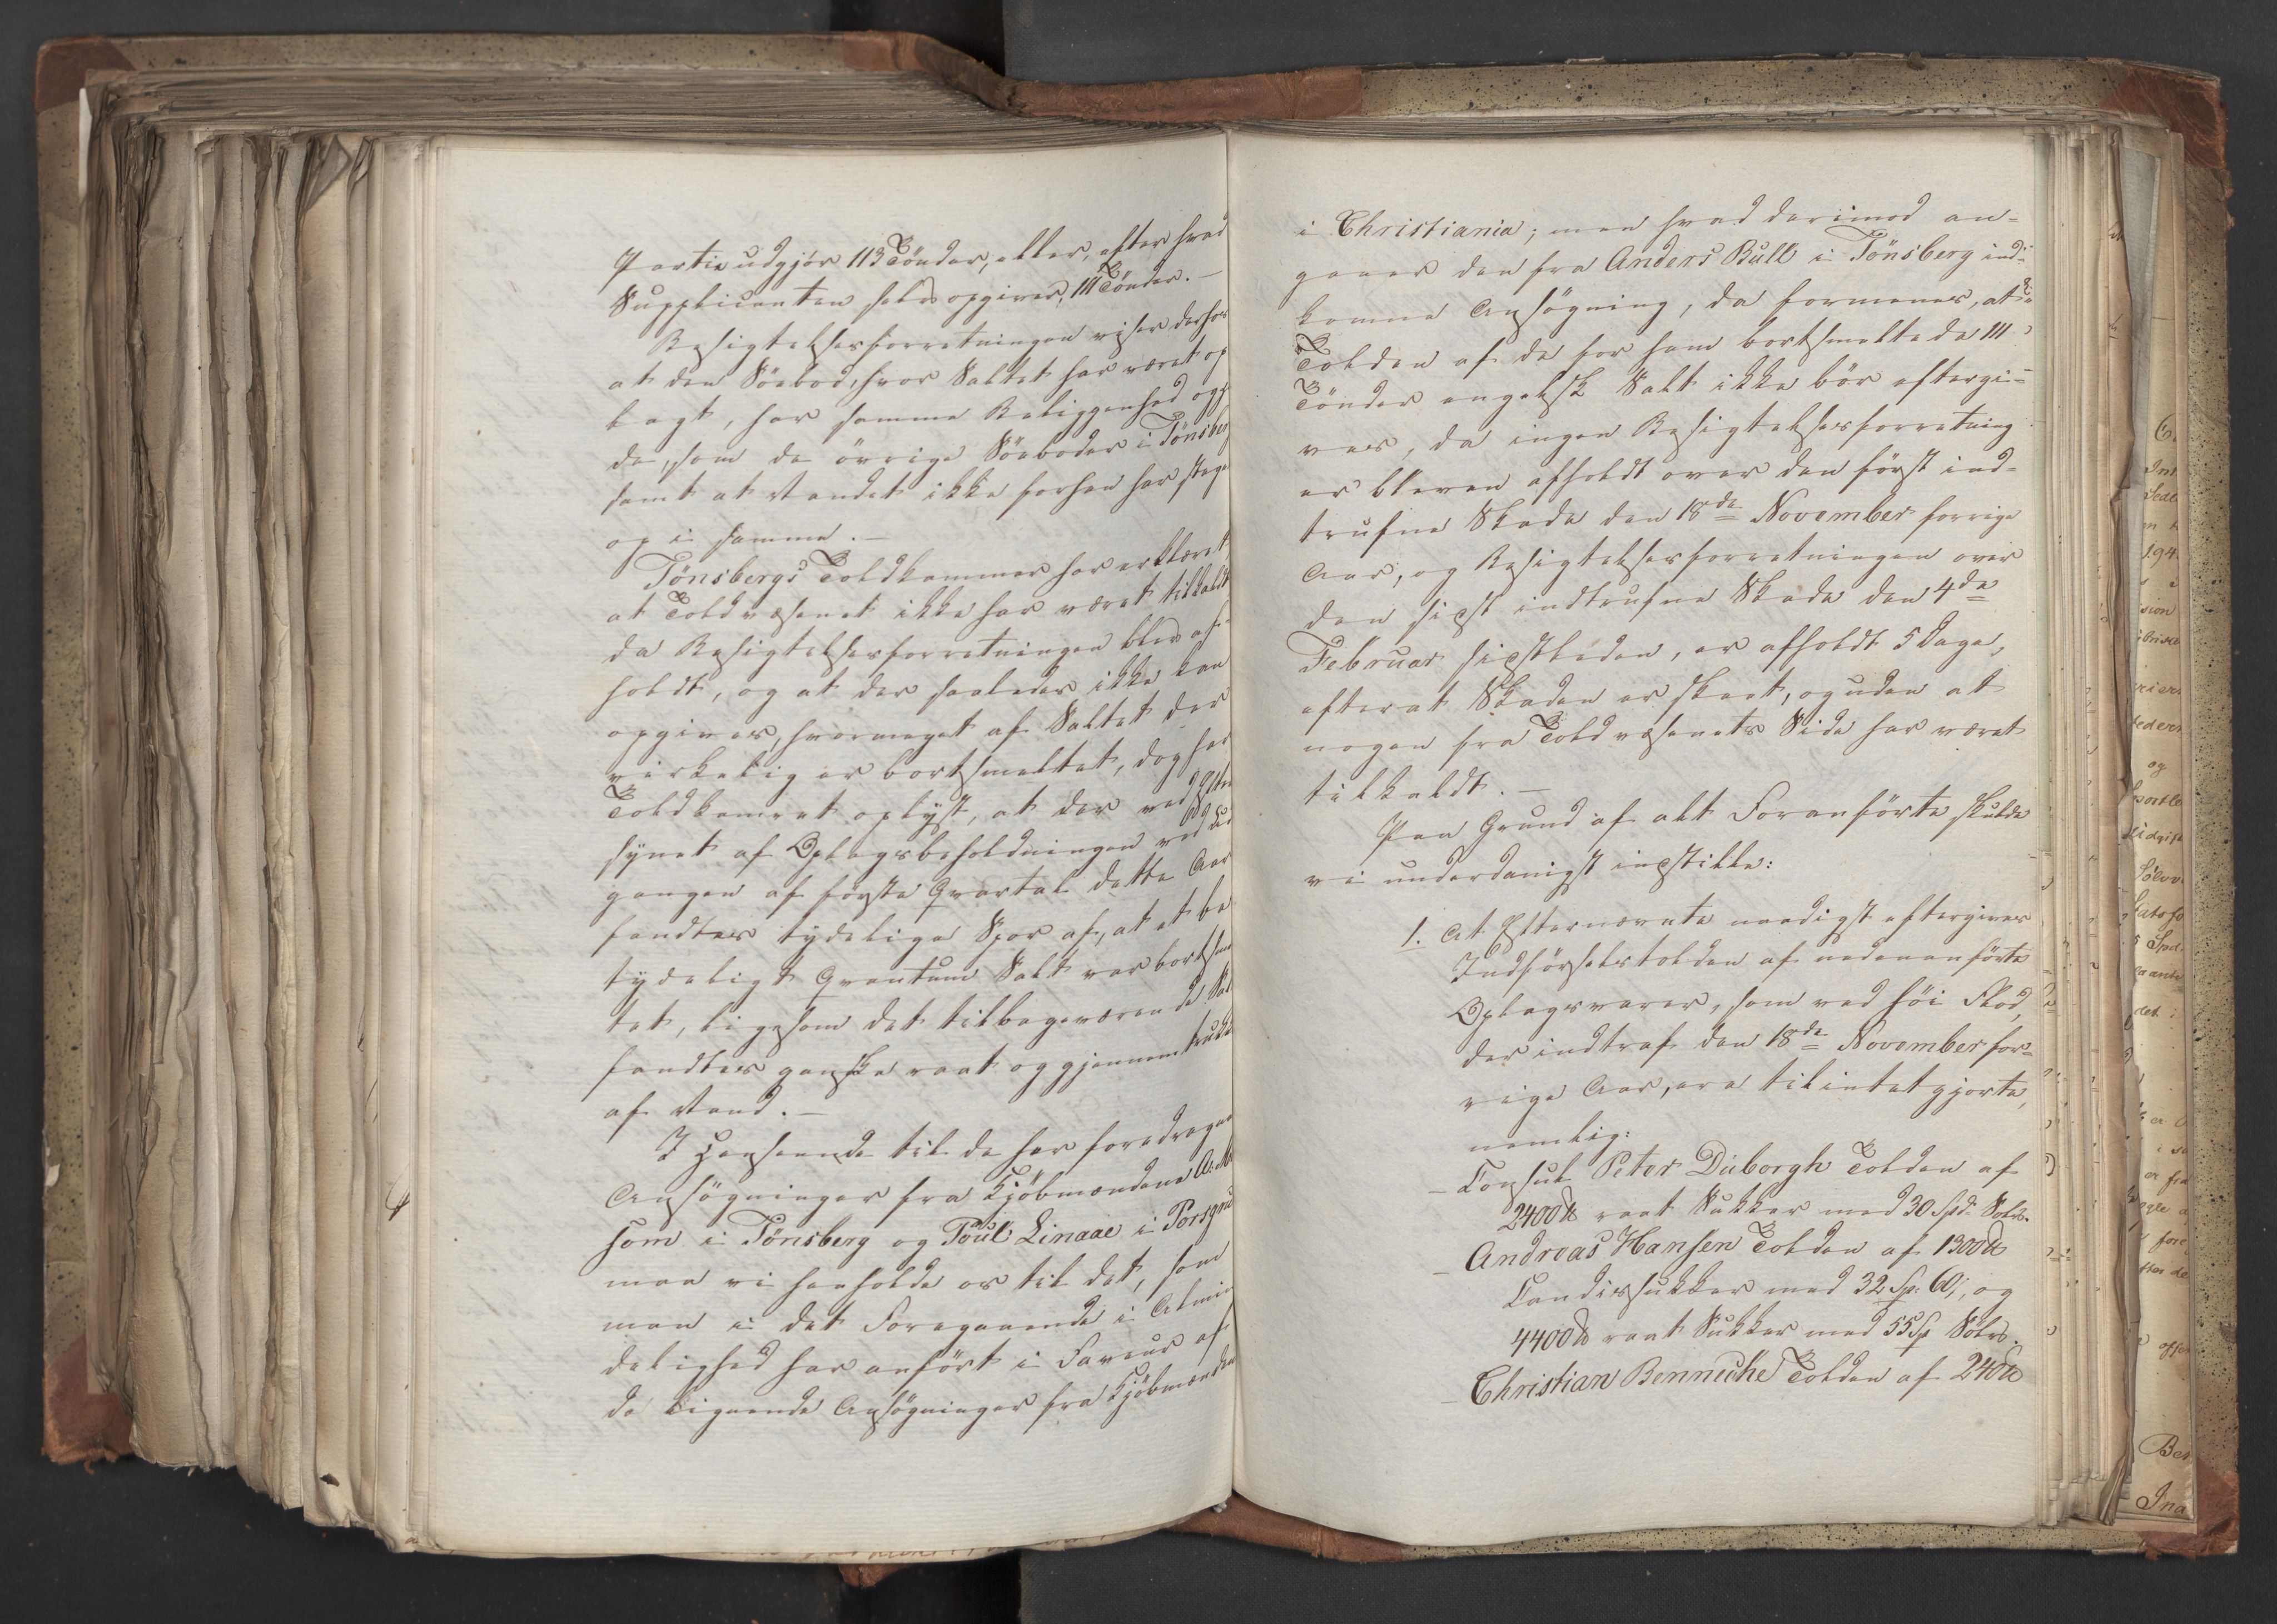 Partie udgjör 113 Tönder, eller, efter hvad
Supplicanten selv opgiver, 111 Tönder. —
Besigtelsesforretningen viser derhos
at den Söebod, hvor Saltet har været op
lagt, har samme Beliggenhed og
de, som de övrige Söeboder i Tönsberg
samt at Vandet ikke forhen har steget
op i samme. —
Tönsbergs Toldkammer har erklæret
at Toldvæsenet ikke har været tilkaldt
da Besigtelsesforretningen blev af-
holdt, og at der saaledes ikke kan
opgives, hvormeget af Saltet der
virkelig er bortsmeltet, dog har
Toldkamret oplyst, at der ved Efter
synet af Oplagsbeholdningen ved Ud
gangen af förste Qvartal dette Aar
fandtes tydelige Spor af, at et be
tydeligt Qvantum Salt var bortsmel
tet, ligesom det tilbageværende Salt
fandtes ganske vaat og gjennemtrukket
af Vand. —
I Henseende til de her foredragne
Ansögninger fra Kjöbmændene
som i Tönsberg og Poul Linaae i Porsgrund
maa vi henholde os til det, som
man i det Foregaaende i Almin
delighed har anfört i Faveur af
de lignende Ansögninger fra Kjöbmænden
i Christiania; men hvad derimod an-
gaaer den fra Anders Bull i Tönsberg ind-
komne Ansögning, da formenes, at
Tolden af de for ham bortsmeltede 111
Tönder engelsk Salt ikke bör eftergi-
ves, da ingen Besigtelsesforretning
er bleven afholdt over den först ind-
trufne Skade den 18de November forrige
Aar, og Besigtelsesforretningen over
den sidst indtrufne Skade den 4de
Februar sidstleden, er afholdt 5 Dage,
efterat Skaden er skeet, og uden at
nogen fra Toldvæsenets Side har været
tilkaldt. —
Paa Grund af alt Foranförte skulde
vi underdanigst indstille:
1. At Efternævnte naadigst eftergives
Indförselstolden af nedenanförte
Oplagsvarer, som ved höi Flod,
der indtraf den 18de November for-
rige Aar, ere tilintetgjorte,
nemlig:
— Consul Peter Duborgh Tolden af
2400 ℔ raat Sukker med 30 Spd. Sölv.
— Andreas Hansen Tolden af 1300 ℔
Candissukker med 32 Sp. 60 ;, og
4400 ℔ raat Sukker med 55 Sp Sölv.
— Christian Benneche Tolden af 240 ℔